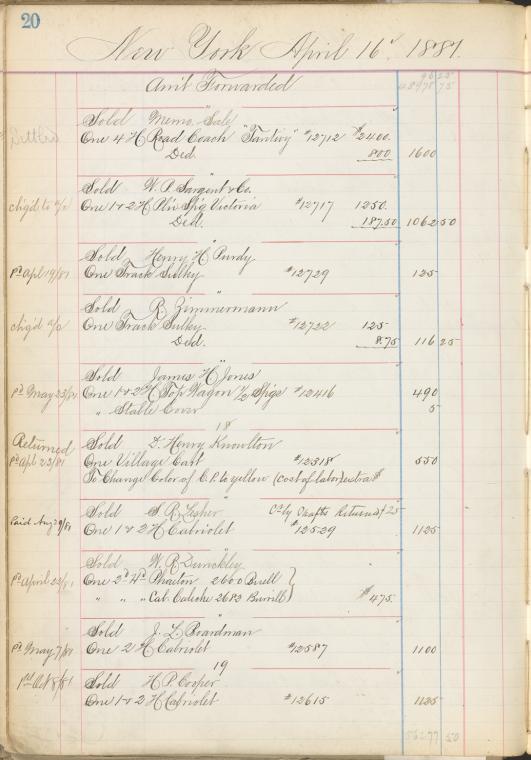 20
New York April 16" 1881.
Am't Forwarded 48978 75
Settled Sold Memo. Sale
One 4 H Road Coach "Tantivy" #12712 $2400.
Ded. 800 1600
"
Sold W. P. Sargent & Co.
Chg'd to a/c One 1 & 2 H Victoria #12717 1250.
Ded. 187.50 1062 50
"
Sold Henry H Purdy
Pd Apl 19/81 One Track Sulky #12729 125
"
Sold R. Zimmermann
chg'd a/c One Track Sulky #12722 125
Ded. 8.75 116 25
"
Sold James H Jones
Pd May 23/81 One 1 & 2 H Top Wagon 1/2 Spgs #12416 490
" Stable Cover 5
18
Returned Sold Henry Knowlton
Pd Apl 23/81 One Village Cart #12318 550
To Change Color of C.P. to yellow (cost of labor) extra $
"
Sold S. R. Lesher Shafts Returned $25
Paid Aug 29/81 One 1 & 2 H Cabriolet #12529 1125
"
Sold W. R. Dunckley
Pd April 22/81 One 2d Hd Phaeton 2600 Buell
" " " Cab. Caleche 2683 Burrill $475.
"
Sold J. L. Boardman
Pd May 7/81 One 2 H Cabriolet #12587 1100
19
Pd Oct 8/81 Sold H. P. Cooper
One 1 & 2 H Cabriolet #12615 1125
50